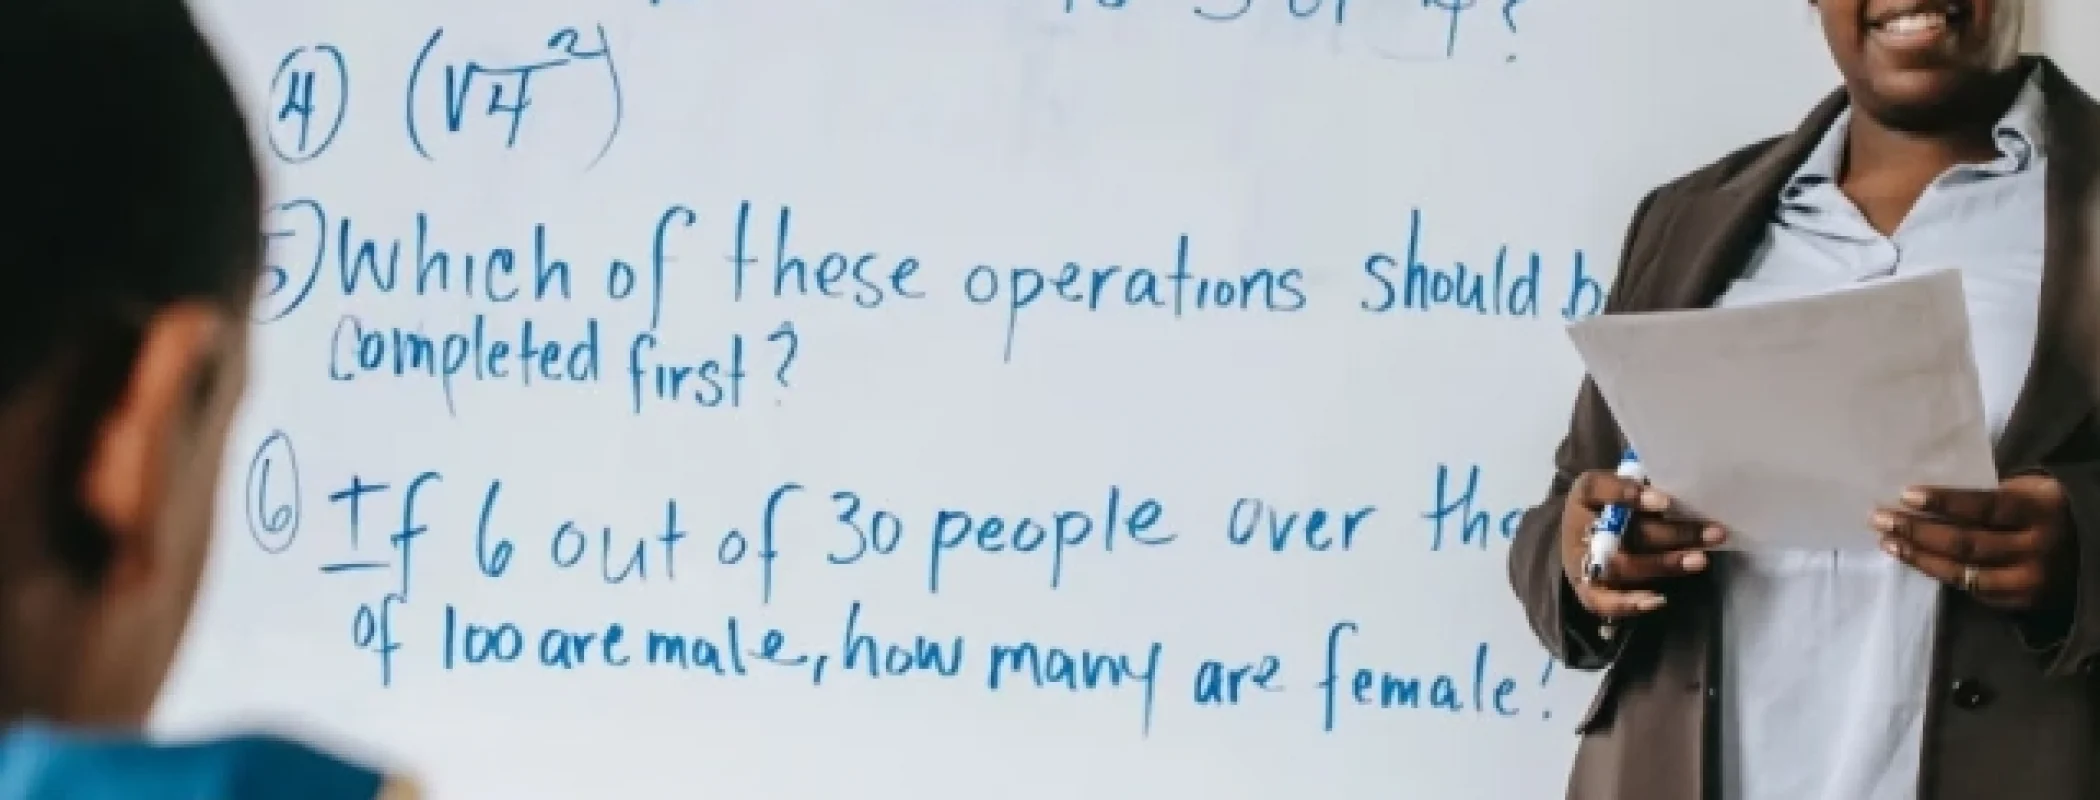 3 or 4?
④ (√4²)
5) Which of these operations should b
completed first?
⑥ If 6 out of 30 people over the
of 100 are male, how many are female?